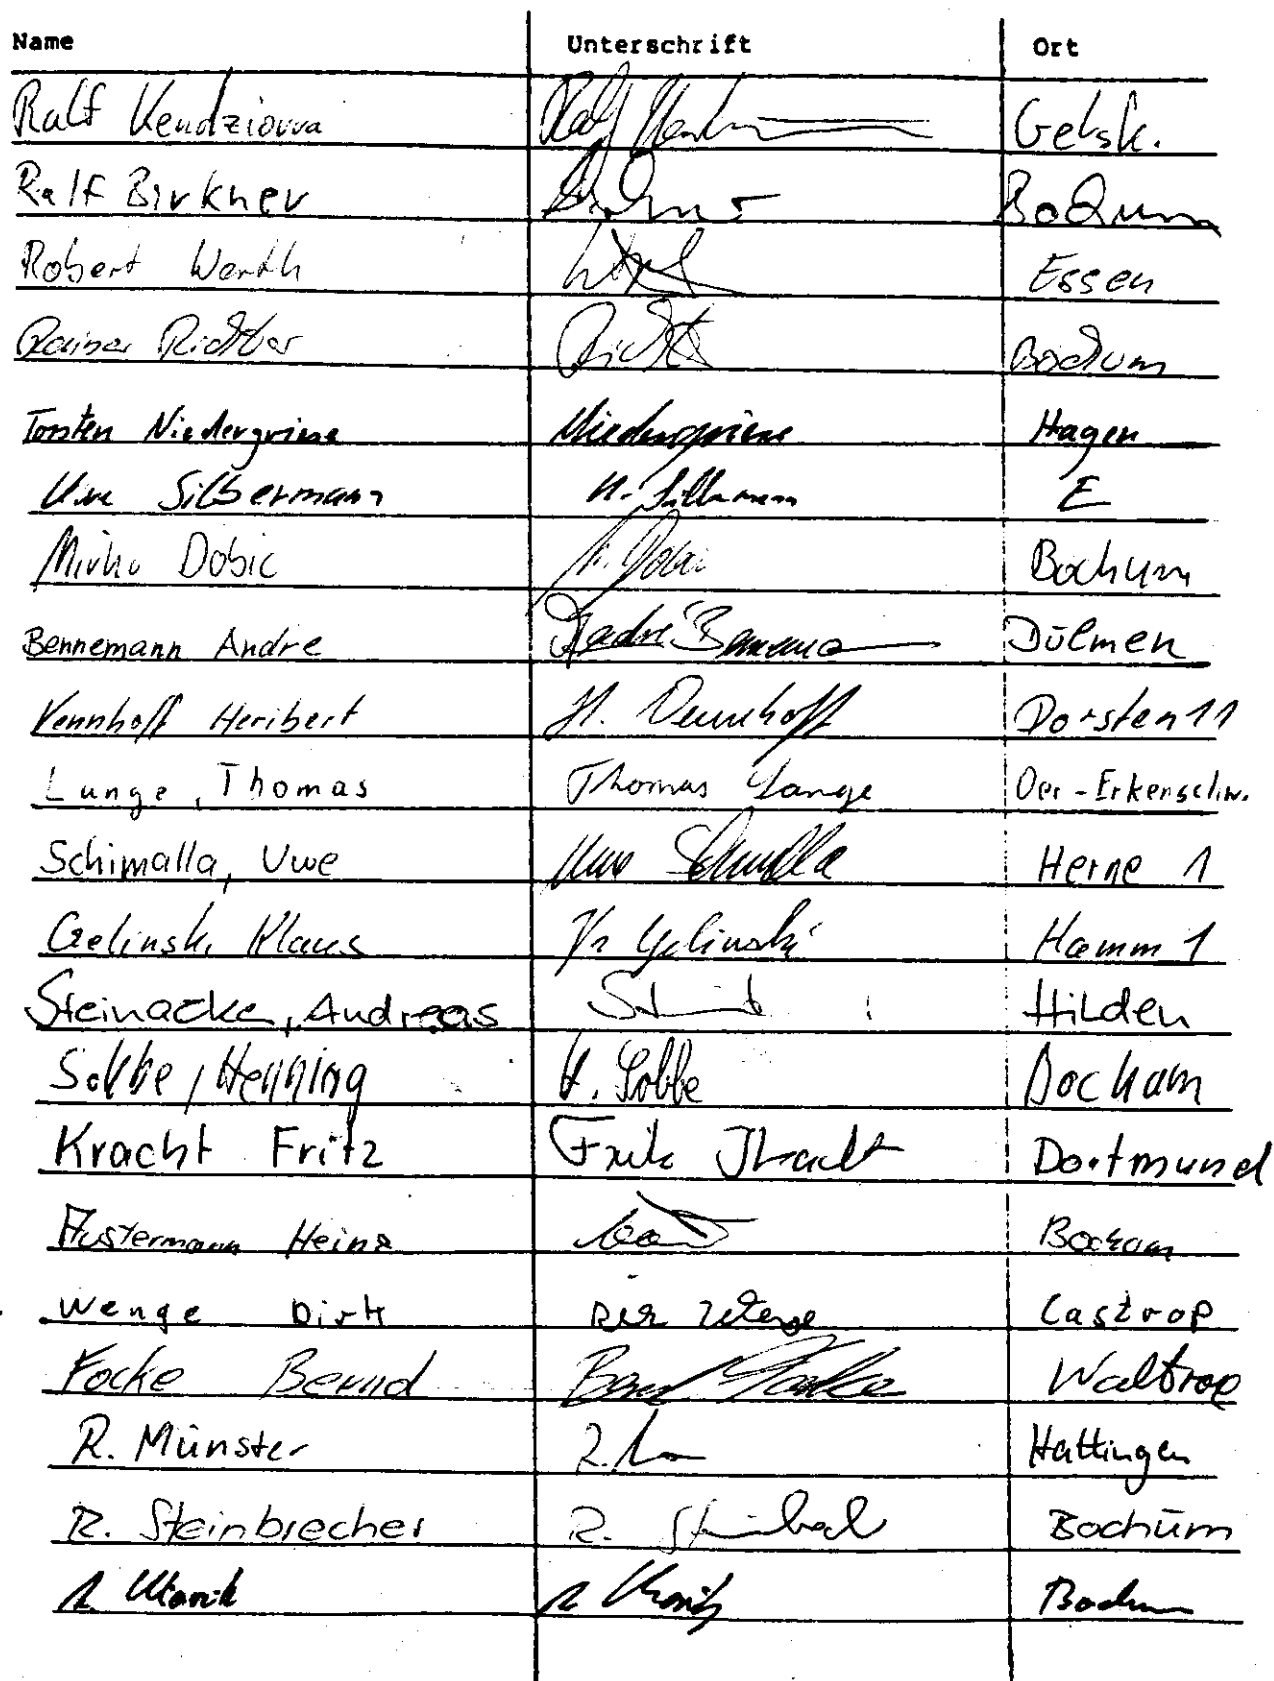 Name Unterschrift Ort
Ralf Kendziorra Ralf Gelsk.
Ralf Birkner Bochum
Robert Werth Essen
Rainer Richter Bochum
Torsten Niedergriese Niedergriese Hagen
Uwe Silbermann U. Silbermann E
Mirko Dobic Bochum
Bennemann Andre Dülmen
Vennhoff Heribert H. Vennhoff Dorsten 11
Lange, Thomas Thomas Lange Oer-Erkenschw.
Schimalla, Uwe Uwe Schimalla Herne 1
Gelinski Klaus Kl Gelinski Hamm 1
Steinacke, Andreas Hilden
Sobbe, Henning H. Sobbe Bochum
Kracht Fritz Fritz Kracht Dortmund
Heinz Bochum
Wenge Dirk Dirk Wenge Castrop
Focke Bernd Bernd Focke Waltrop
R. Münster R. Hattingen
R. Steinbrecher R. Bochum
Bochum